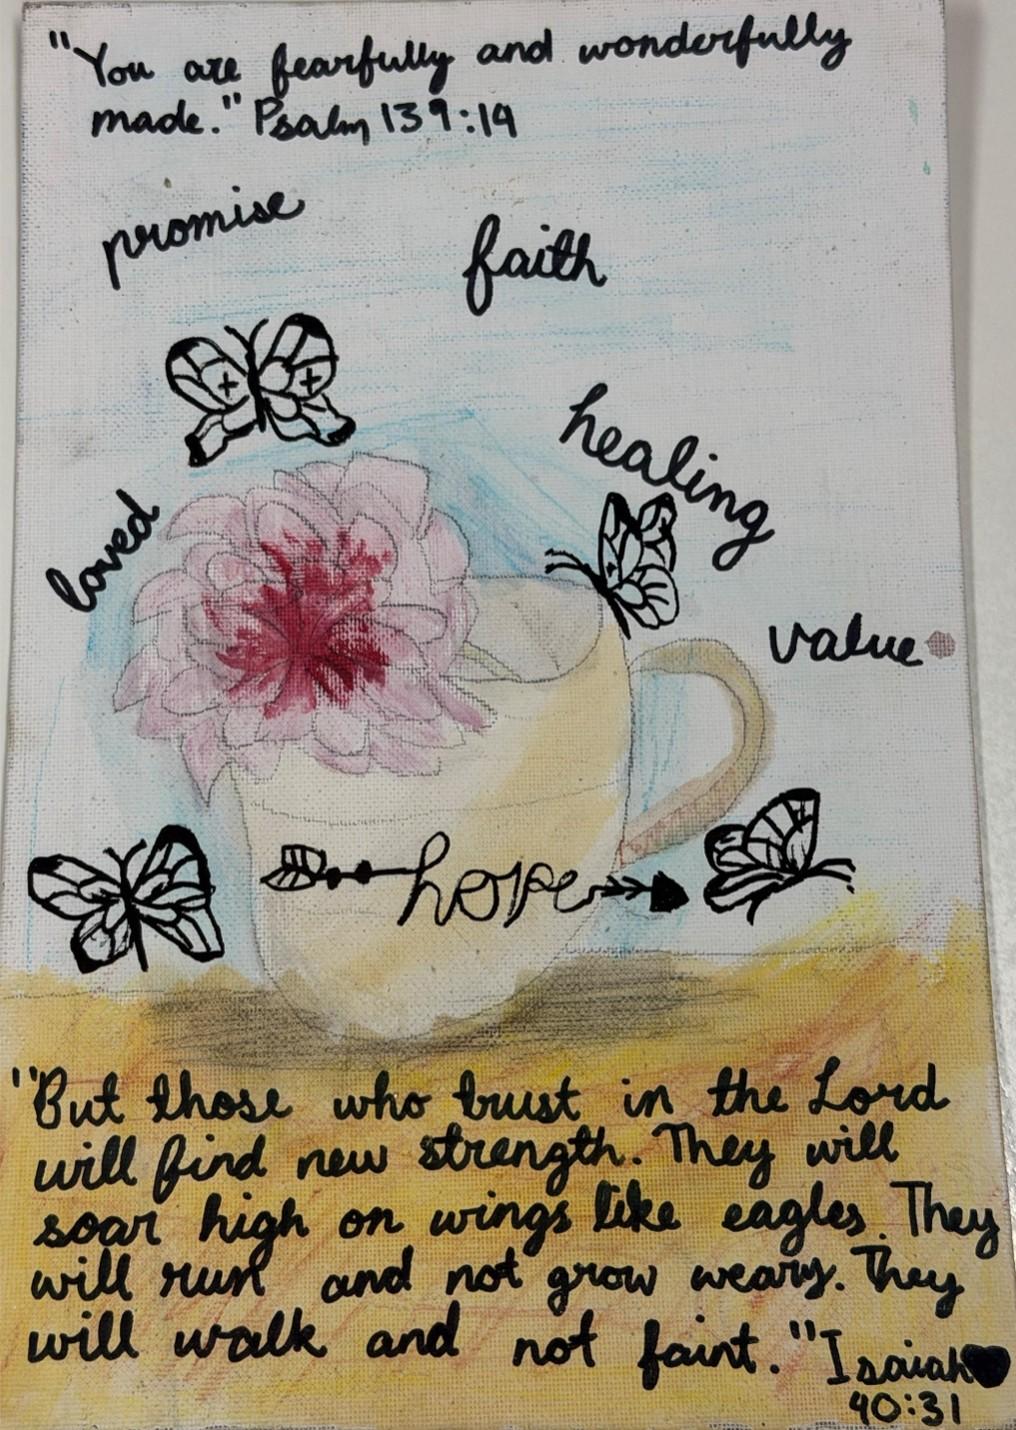 "You are fearfully and wonderfully
made." Psalm 139:14
promise
faith
healing
loved
value
hope
"But those who trust in the Lord
will find new strength. They will
soar high on wings like eagles. They
will run and not grow weary. They
will walk and not faint." Isaiah
40:31